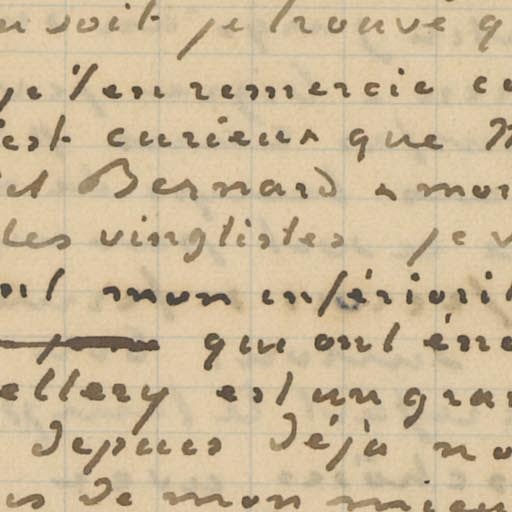 soit je trouve q
je t'en remercie
est curieux que
Bernard a mon
les vingtistes je v
mon infériorit
qui ont
ellery est un gran
depuis déjà no
de mon mieu